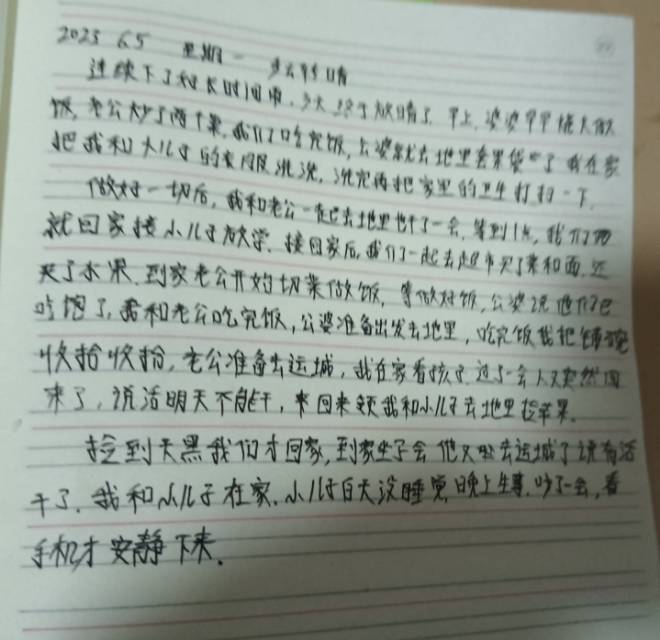 2023 6.5 星期一 多云转晴
连续下了很长时间雨,今天终于放晴了,早上,婆婆早早起来做
饭,老公炒了两个菜,我们吃完饭,公婆就去地里套果袋了,我在家
把我和大儿子的衣服洗洗,洗完再把家里的卫生打扫一下.
做好一切后,我和老公一起去地里也干了一会,等到1点,我们
就回家接小儿子放学,接回家后,我们一起去超市买了菜和面,还
买了水果,到家老公开始切菜做饭,等做好饭,公婆说他们已
吃饱了,我和老公吃完饭,公婆准备出发去地里,吃完饭我把锤碗
收拾收拾,老公准备去运城,我在家看孩子,过了一会人又突然回
来了,说活明天不能干,来回来领我和小儿子去地里捡苹果.
捡到天黑我们才回家,到家坐了会他又出去运城了说有活
干了,我和小儿子在家,小儿子白天没睡觉,晚上生事,吵了一会,看
手机才安静下来.